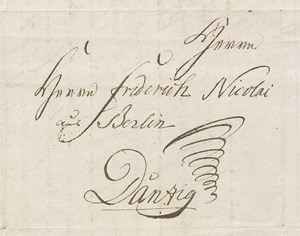 Herrn
Herrn Friderich Nicolai
aus Berlin
Danzig